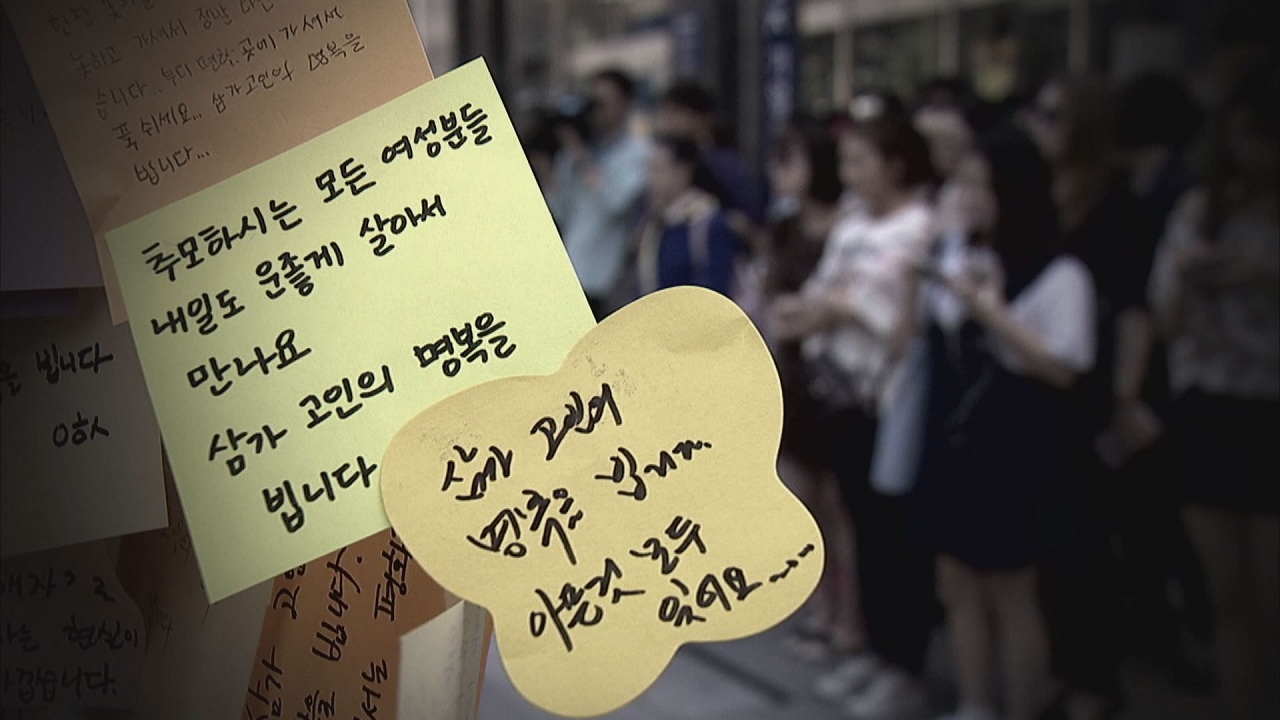 못하고 가셔서 정말
습니다.. 부디 편한 곳에 가셔서
푹 쉬세요... 삼가 고인의 명복을
빕니다...
추모하시는 모든 여성분들
내일도 운좋게 살아서
만나요
삼가 고인의 명복을
빕니다
삼가 고인의
명복을 빕니다.
아픈것 모두
잊어요....
을 빕니다
현실이
빕니다.
삼가